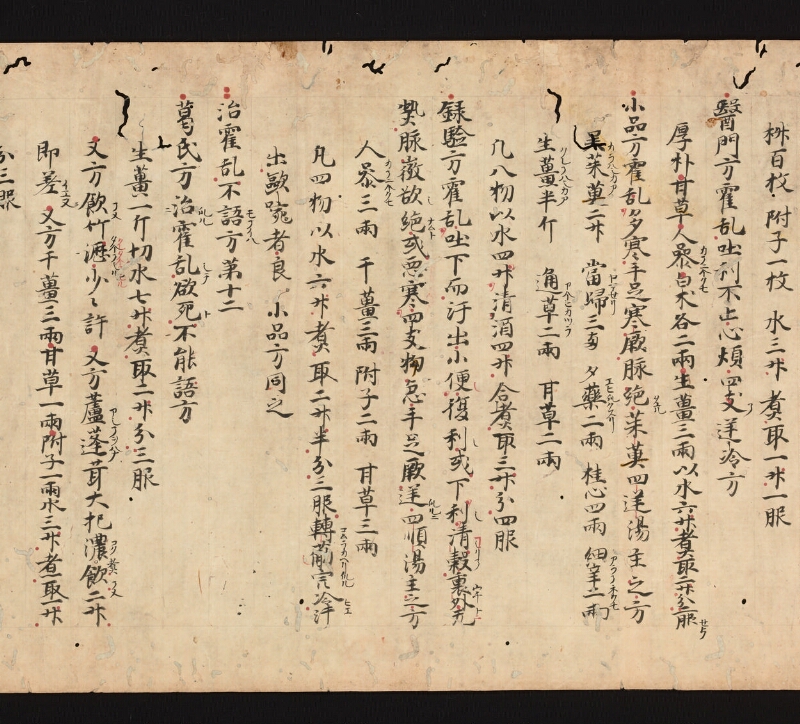 桝百枚 附子一枚 水三升煮取一升一服
醫門方霍乱吐利不止心煩四支逆冷方
厚朴甘草人參白朮各二兩生薑三兩以水六升煮取二升分三服
小品方霍乱多寒手足寒厥脉絶茱萸四逆湯主之方
呉茱萸二升 當歸三兩 夕藥二兩 桂心四兩 細辛二兩
生薑半斤 通草二兩 甘草二兩
凡八物以水四升清酒四升合煮取三升分四服
録驗方霍乱吐下而汗出小便復利或下利清穀裏外
脉微欲絶或悪寒四支拘急手足厥逆四順湯主之方
人參三兩 干薑三兩 附子二兩 甘草三兩
凡四物以水六升煮取二升半分三服轉筋完冷汗
出歐 者良 小品方同之
治霍乱不語方第十二
葛氏方治霍乱欲死不能語方
生薑一斤切水七升煮取二升分三服
又方飲竹瀝少々許 又方蘆蓬茸大把濃飲二升
即差 又方干薑二兩甘草一兩附子一兩水三升者取一升
分三服